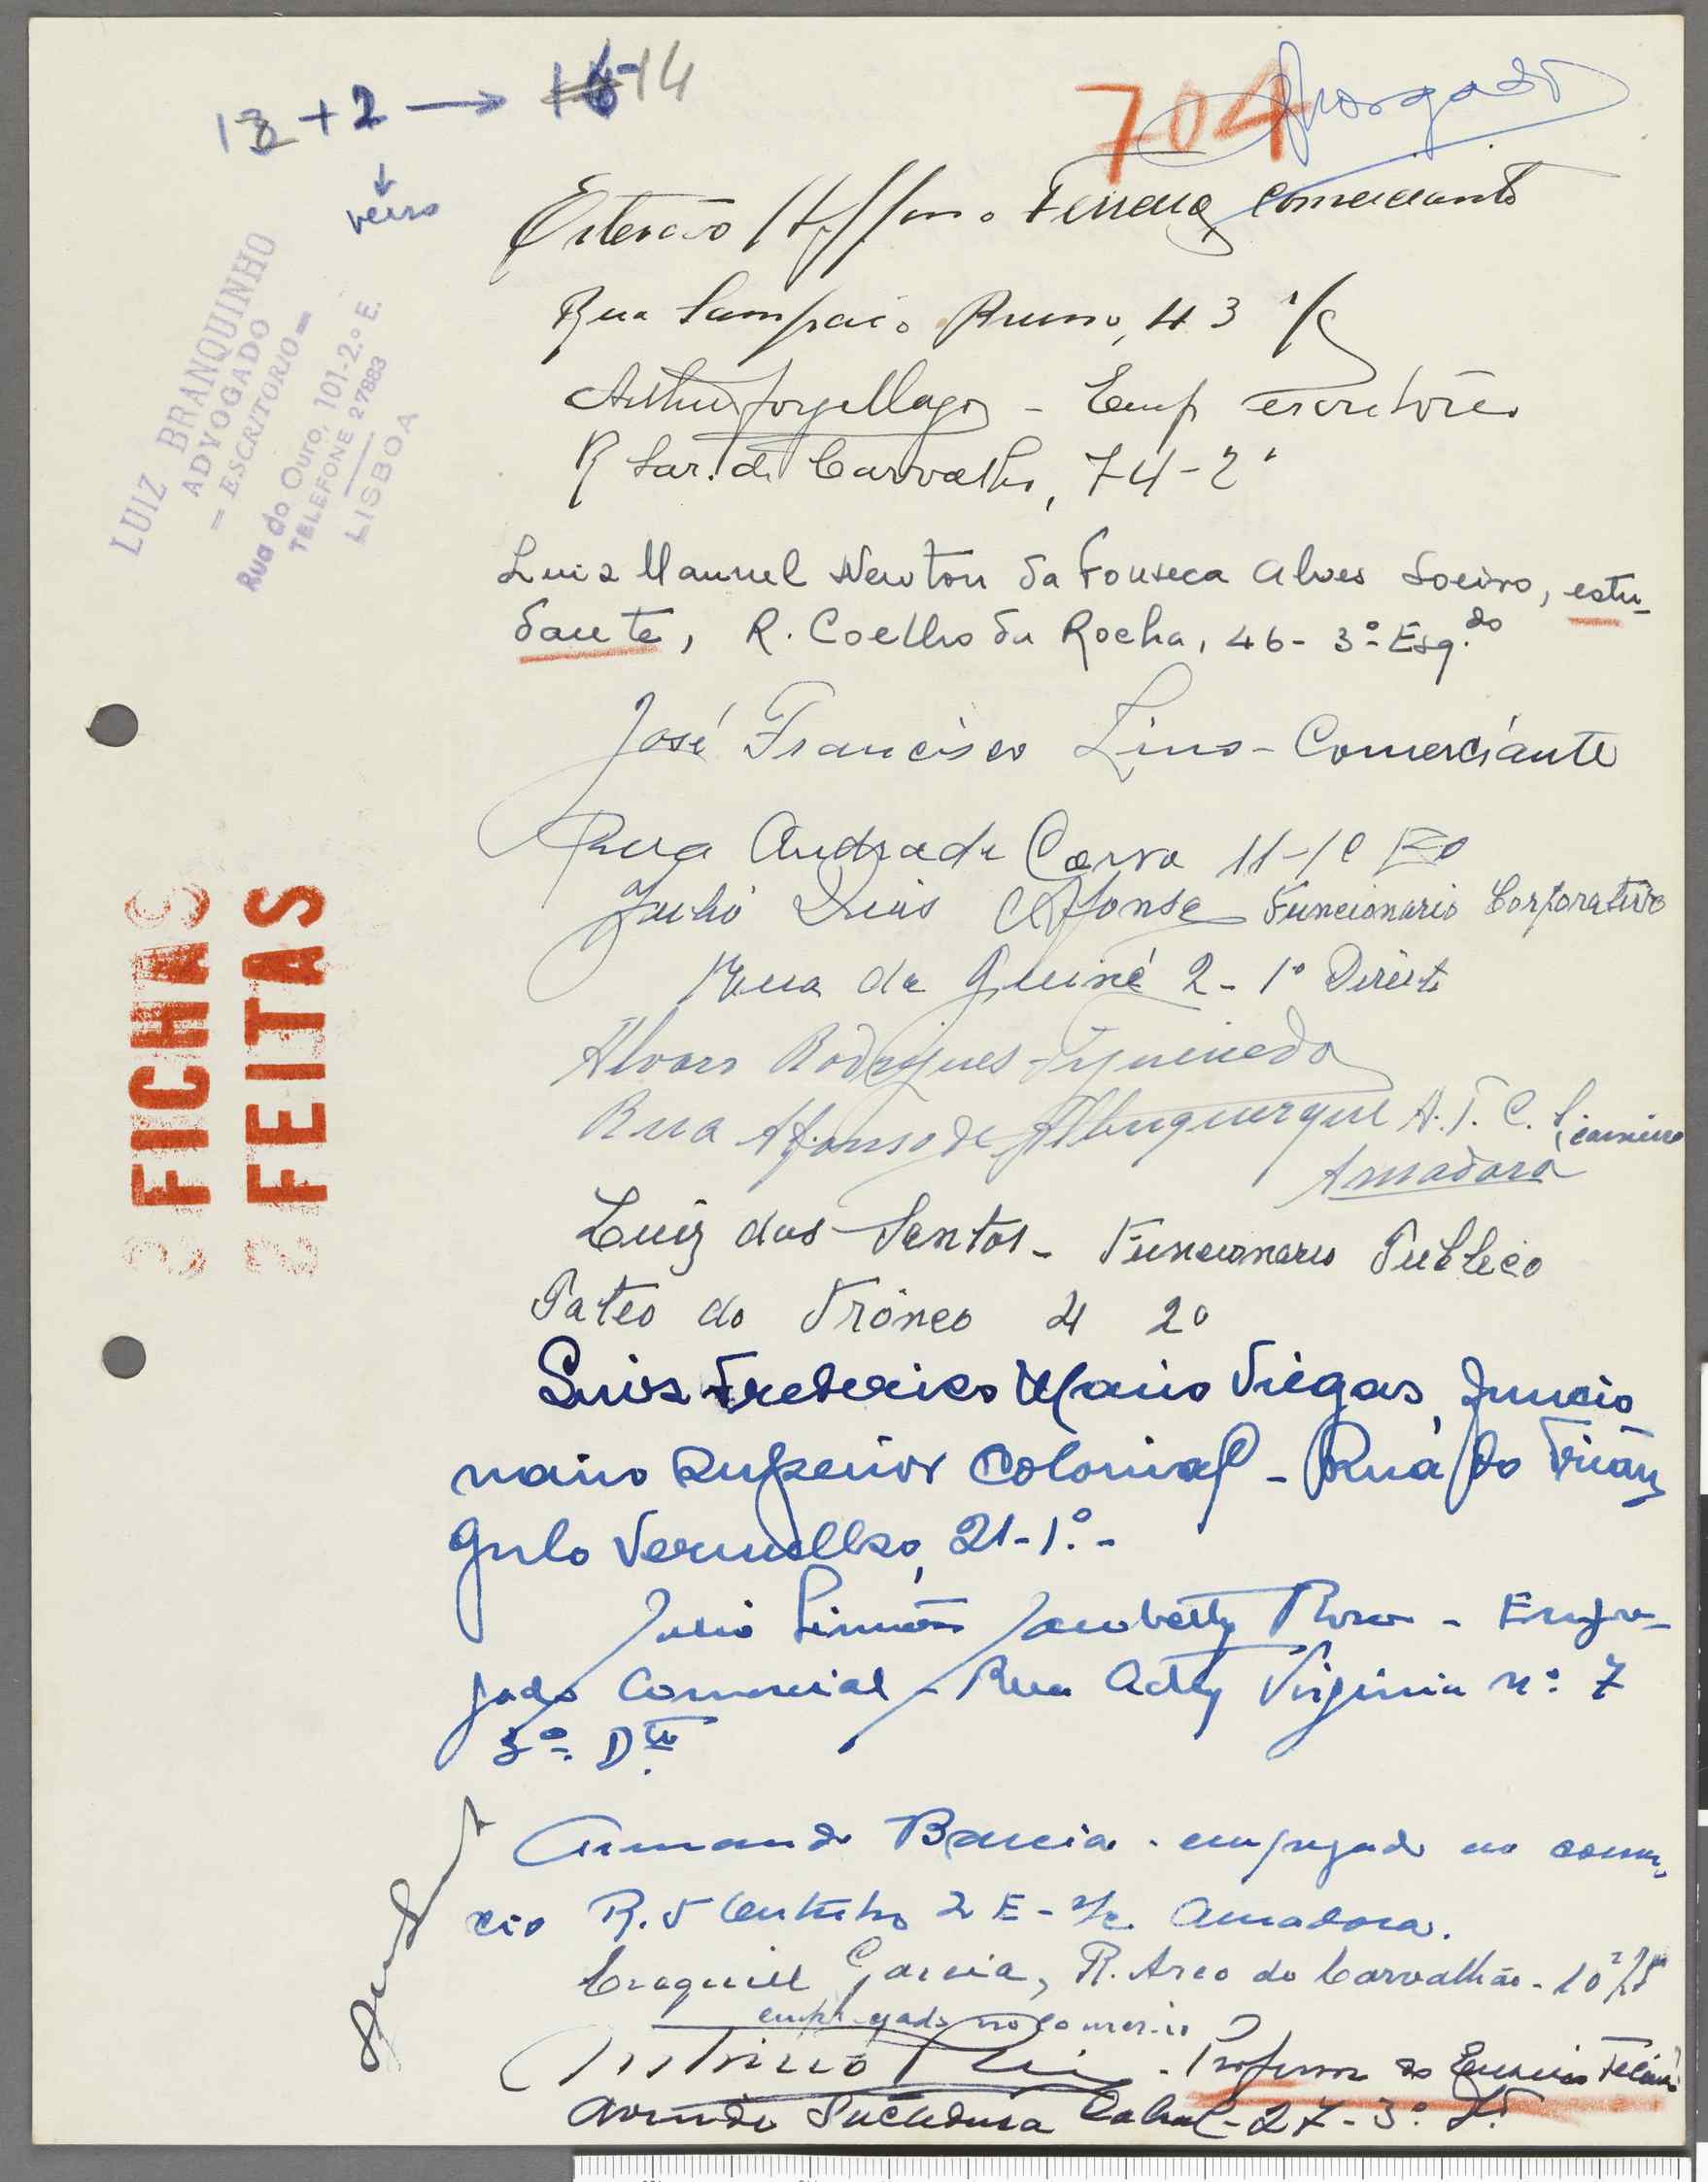 12 + 2 → 14
verso
704
Morgado
Estevão Affonso Ferreira Comerciante
LUIZ BRANQUINHO
ADVOGADO
= ESCRITORIO =
Rua do Ouro, 101-2.º E.
TELEFONE 27883
LISBOA
Rua Sampaio Bruno, 43 r/c
Arthur Jorge - Emp escritório
R Sar. de Carvalho, 74-2º
Luiz Manuel Newton da Fonseca Alves Soeiro, estu-
dante, R. Coelho da Rocha, 46-3º Esq.do
José Francisco Lino - Comerciante
Rua Andrade Corvo 11-1º
Julio Dias Afonso Funcionario Corporativo
Rua da Guiné 2-1º Direito
FICHAS
FEITAS
Alvaro Rodrigues Figueiredo
Rua Afonso de Albuquerque A.T.C.
Amadora
Luiz dos Santos - Funcionario Publico
Pateo do Trônco 4 2º
Luiz Frederico Mario Viegas, funcio
nario superior colonial - Rua do Triân
gulo Vermelho, 21-1.º-
Julio Simões Jacobetty Rosa - Empre-
gado Comercial - Rua Actriz Virginia nº 7
3º. Dto
Armando Barcia - empregado no comer-
cio R. 5 Outubro 2 E - r/c Amadora.
Ezequiel Garcia, R. Arco do Carvalhão - 10
empregado no comercio
Professor do Ensino Tecnico
Avenida Sacadura Cabral - 27-3º